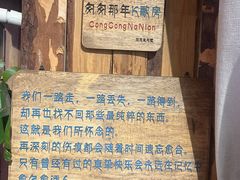 匆匆那年K歌房
CongCongNaNian
我们一路走，一路丢失，一路得到，
却再也找不回那些最纯粹的东西。
这就是我们所怀念的。
再深刻的伤痕都会随着时间遗忘愈合。
只有曾经有过的真挚快乐会永远生记忆